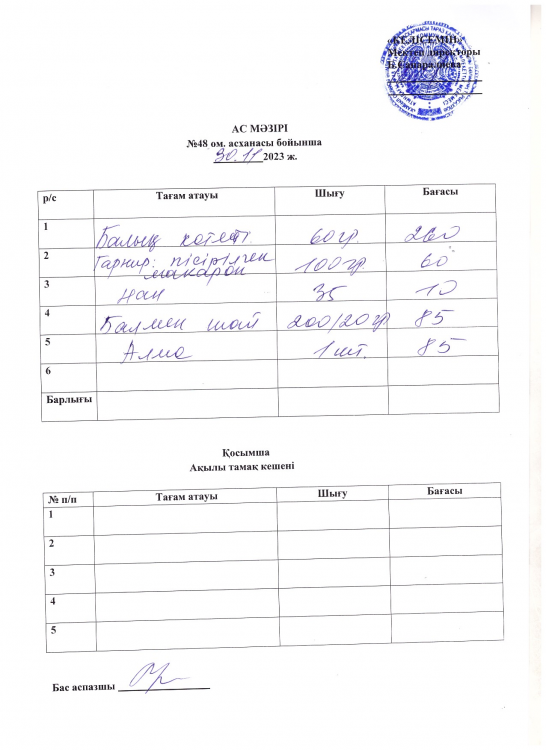 «КЕЛІСЕМІН»
Мектеп директоры
АС МӘЗІРІ
№48 ом. асханасы бойынша
30.11 2023 ж.
р/с Тағам атауы Шығу Бағасы
1 Балық котлеті 60гр. 260
2 Гарнир: пісірілген макарон 100гр. 60
3 Нан 35 10
4 Балмен шай 200/20гр 85
5 Алма 1шт. 85
6
Барлығы
Қосымша
Ақылы тамақ кешені
№ п/п Тағам атауы Шығу Бағасы
1
2
3
4
5
Бас аспазшы